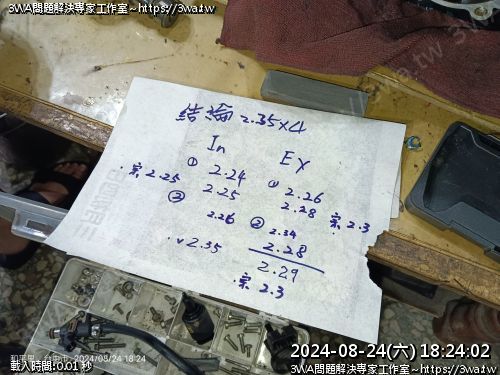 3WA問題解決專家工作室~https://3wa.tw
結論 2.35x4
In
① 2.24
2.25
票 2.25
②
2.26
v 2.35
EX
① 2.26
2.28
票 2.3
② 2.34
2.28
2.29
票 2.3
2024/08/24 18:24
2024-08-24(六) 18:24:02
載入時間:0.01 秒
3WA問題解決專家工作室~https://3wa.tw